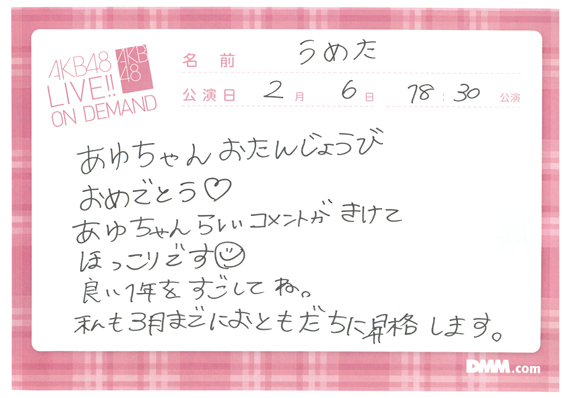 AKB48
LIVE!!
ON DEMAND
AKB
48
名前 うめた
公演日 2月 6日 18:30 公演
あゆちゃん おたんじょうび
おめでとう♡
あゆちゃんらしいコメントが きけて
ほっこりです☺
良い1年を すごしてね。
私も3月までにおともだちに昇格します。
DMM.com